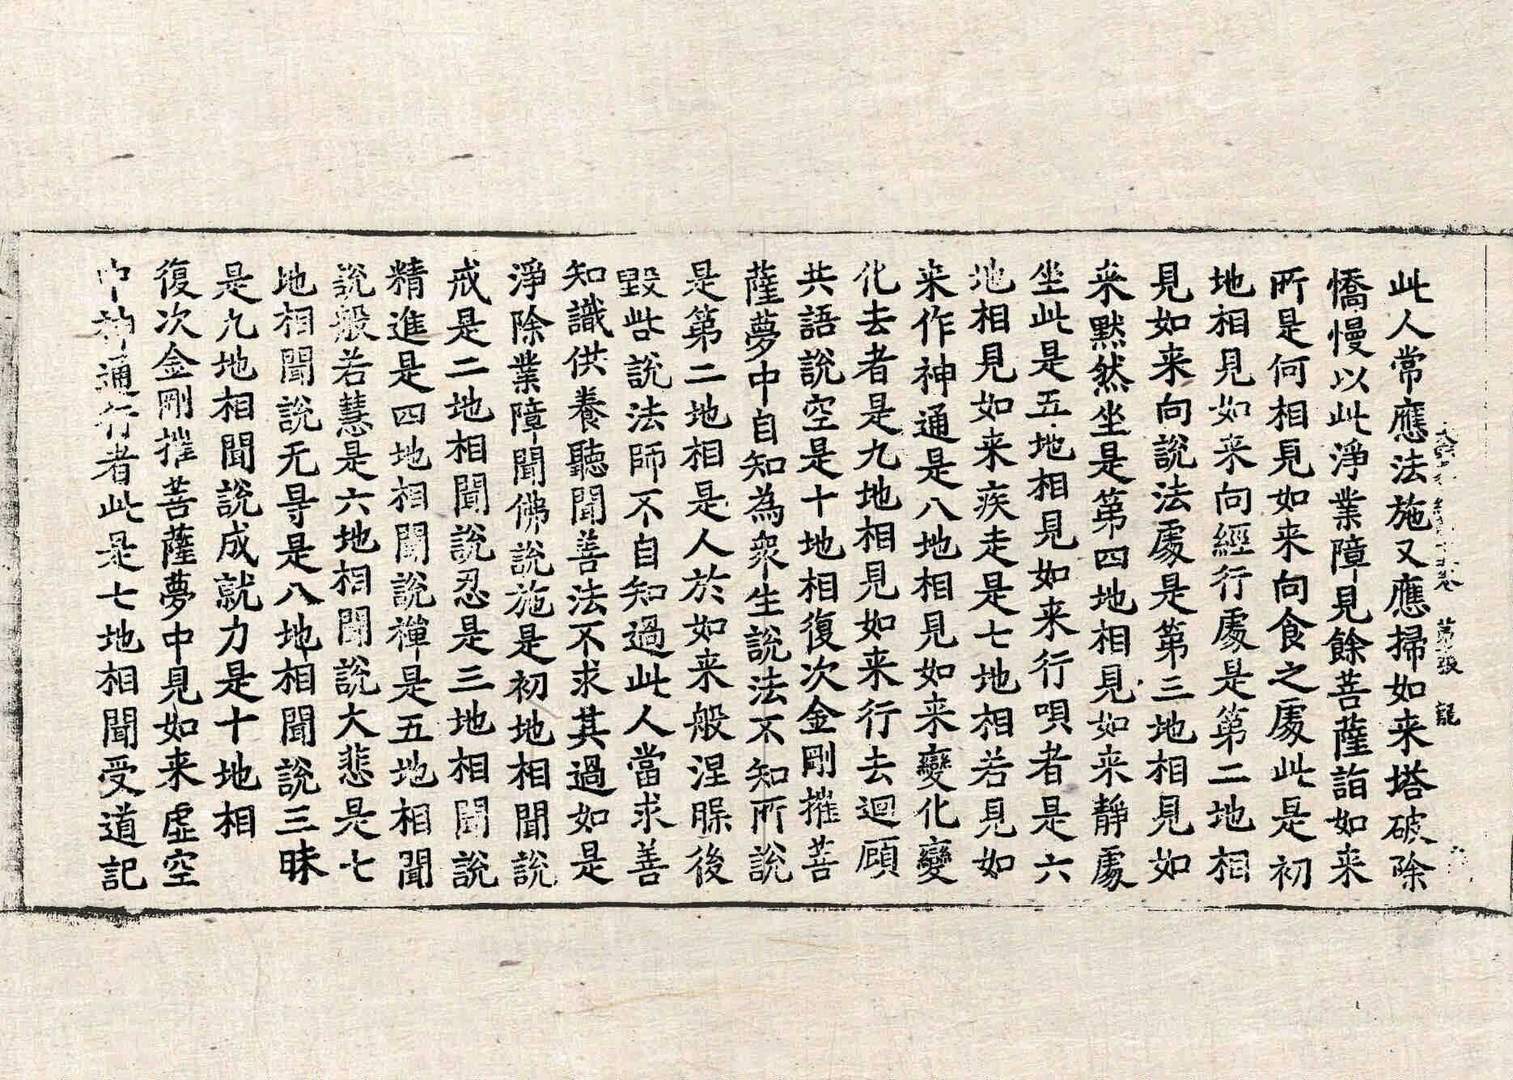 此人常應法施又應掃如来塔破除
憍慢以此淨業障見餘菩薩詣如来
所是何相見如来向食之處此是初
地相見如来向經行處是第二地相
見如来向說法處是第三地相見如
来默然坐是第四地相見如来靜處
坐此是五地相見如来行唄者是六
地相見如来疾走是七地相若見如
来作神通是八地相見如来變化變
化去者是九地相見如来行去迴顧
共語說空是十地相復次金剛摧菩
薩夢中自知為衆生說法不知所說
是第二地相是人於如来般涅槃後
毀呰說法師不自知過此人當求善
知識供養聽聞善法不求其過如是
淨除業障聞佛說施是初地相聞說
戒是二地相聞說忍是三地相聞說
精進是四地相聞說禪是五地相聞
說般若慧是六地相聞說大悲是七
地相聞說无㝵是八地相聞說三昧
是九地相聞說成就力是十地相
復次金剛摧菩薩夢中見如来虛空
中神通行者此是七地相聞受道記